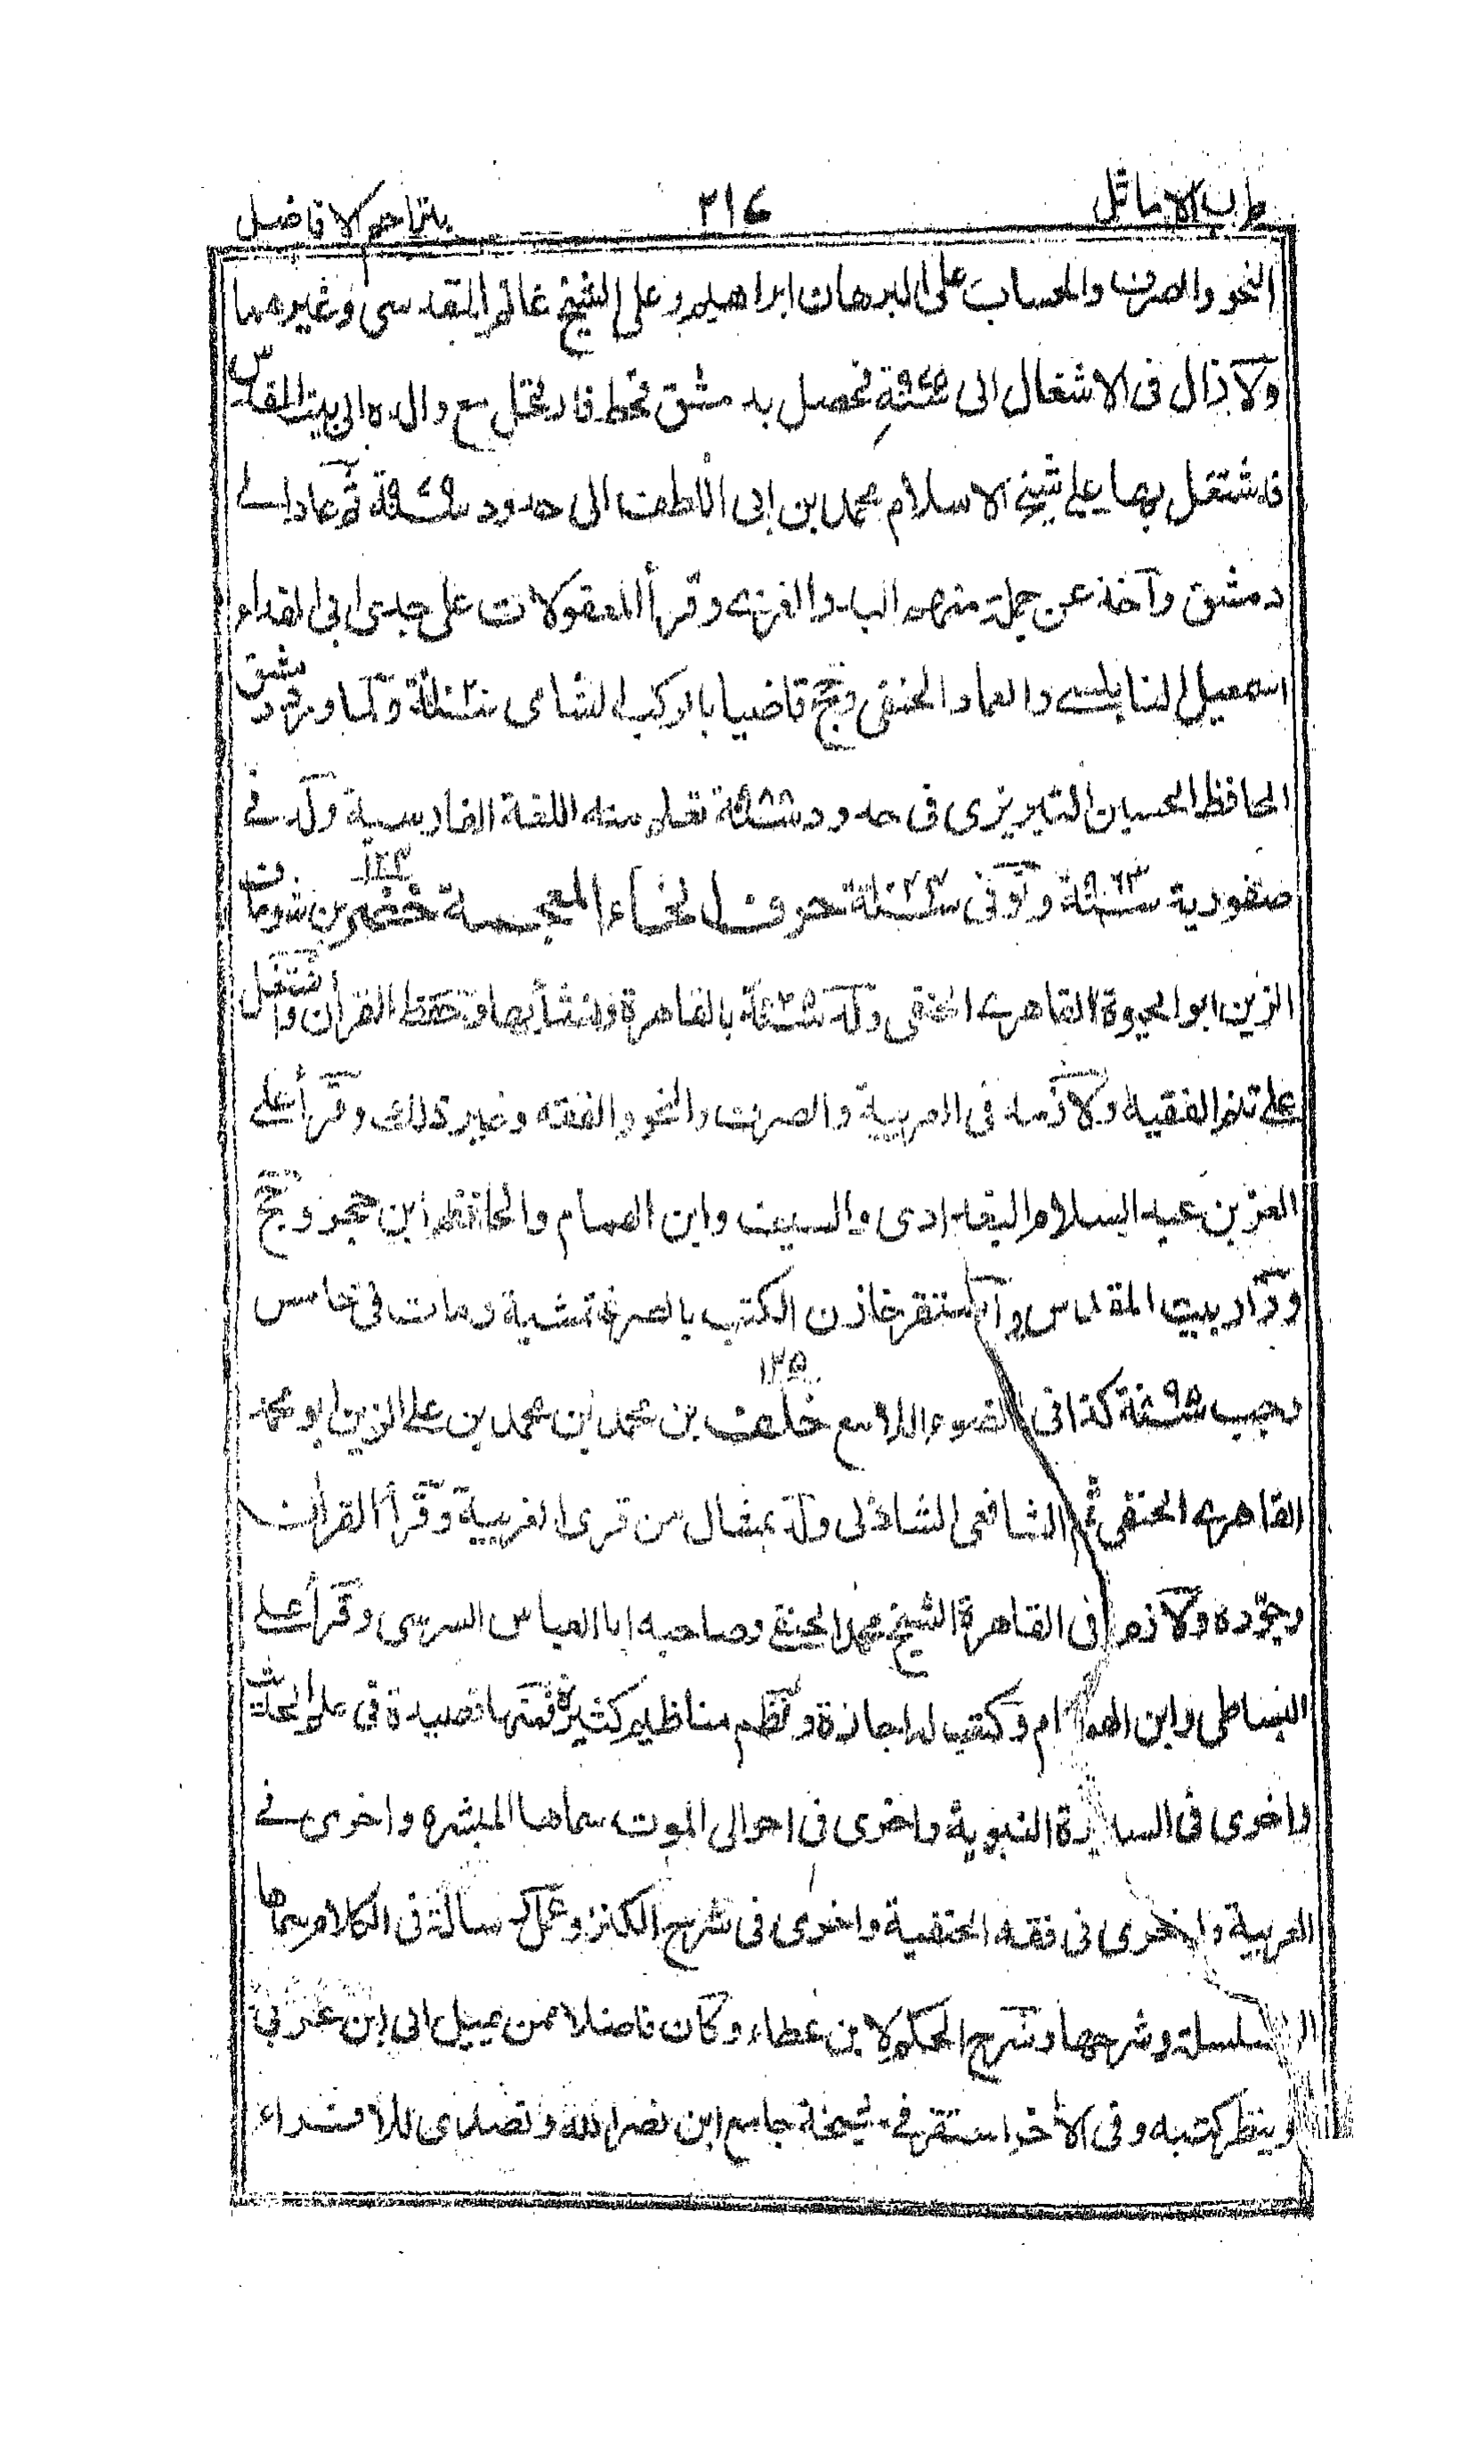 طرب الاماثل ٢١٤ بتراجم الافاضل
النحو والصرف والحساب على البرهان ابراهيم وعلى الشيخ غانم المقدسى وغيرهما
ولازال فى الاشغال الى فحصل بدمشق قحط فارتحل مع والده الى بيت المقدس
فاشتغل بها على شيخ الاسلام محمد بن ابى اللطف الى حدود ثم عاد الے
دمشق وآخذ عن جملة منهم البدر الغزے وقرأ المعقولات على جدى ابى الفداء
اسمعيل النابلسے والعماد الحنفى وحج قاضيا بالركب الشامى سنة وَلَما ورد دمشق
الحافظ الحسين التبريزى فى حدود تعلم منه اللغة الفارسية وَلد فے
صفورية سنة ٩٦٣ وتوَفى سنة حرف الخاء المعجمة ١٢٤ خضر بن
الزين ابو الحيوة القاهرے الحنفى وَلد سنة بالقاهرة ونشأ بها وحَفظ القرآن واشتغل
على الفقيه ولَازمه فى العربية والصرف والنحو والفقه وغير ذلك وقَرأ على
العز بن عبد السلام البغدادى والسيف وابن الهمام والحافظ ابن حجر وحَج
وزَار بيت المقدس وآستقر خازن الكتب بالصرغتمشية ومات فى خامس
رجب كذا فى الضوء اللامع ١٢٥ خلف بن محمد بن محمد بن على الزين ابو محمد
القاهرے الحنفى ثم الشافعى الشاذلى وَلد من قرى الغربية وقَرأ القرآن
وجوّده ولَازم فى القاهرة الشيخ محمد الحنفى وصاحبه ابا العباس السرسى وقَرأ على
البساطى وابن الهمام وكَتب له اجازة ونَظم مناظيم كثيرة فمنها قصيدة فى علم الحديث
واخرى فى السيرة النبوية واخرى فى احوال الموت سماها المبشره واخرى فے
العربية واخرى فى فقه الحنفية واخرى فى شرح الكنز وعَمل رسالة فى الكلام سماها
السلسلة وشرحها وشَرح الحكم لابن عطاء وكَان فاضلا ممن يميل الى ابن عربى
وينظر كتبه وفى الآخر استقر فے مشيخة جامع ابن نصر الله وتصدى للاقراء